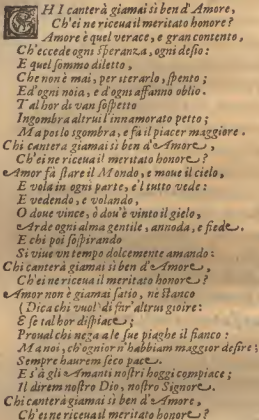 CHI canterà giamai sì ben d'Amore,
Ch'ei ne riceua il meritato honore?
Amore è quel verace, e gran contento,
Ch'eccede ogni speranza, ogni desio:
E quel sommo diletto,
Che non è mai, per iterarlo, spento;
Ed'ogni noia, e d'ogni affanno oblio.
Talhor di van sospetto
Ingombra altrui l'innamorato petto;
Ma posto sgombra, e fà il piacer maggiore.
Chi canterà giamai sì ben d'Amore,
Ch'ei ne riceua il meritato honore?
Amor fà stare il Mondo, e moue il cielo,
E vola in ogni parte, e'l tutto vede:
E vedendo, e volando,
O doue vince, ò dou'è vinto il gielo,
Arde ogni alma gentile, annoda, e fiede.
E chi poi sospirando
Si viue vn tempo dolcemente amando:
Chi canterà giamai sì ben d'Amore,
Ch'ei ne riceua il meritato honore?
Amor non è giamai satio, nè stanco
(Dica chi vuol) di far'altrui gioire:
E se talhor dispiace;
Proual chi nega a le sue piaghe il fianco:
Ma noi, ch'ogn'hor n'habbiam maggior desire;
Sempre haurem seco pace.
E s'à gli Amanti nostri hoggi compiace;
Il direm nostro Dio, nostro Signore.
Chi canterà giamai sì ben d'Amore,
Ch'ei ne riceua il meritato honore?